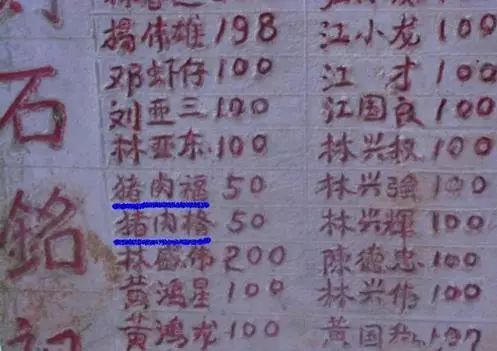 石
銘
揭伟雄 198
邓虾仔 100
刘亚三 100
林亚东 100
猪肉福 50
猪肉格 50
林盛伟 200
黄鸿星 100
黄鸿龙 100
江小龙 100
江才 100
江国良 100
林兴权 100
林兴強 100
林兴輝 100
陳德忠 100
林兴伟 100
黄国